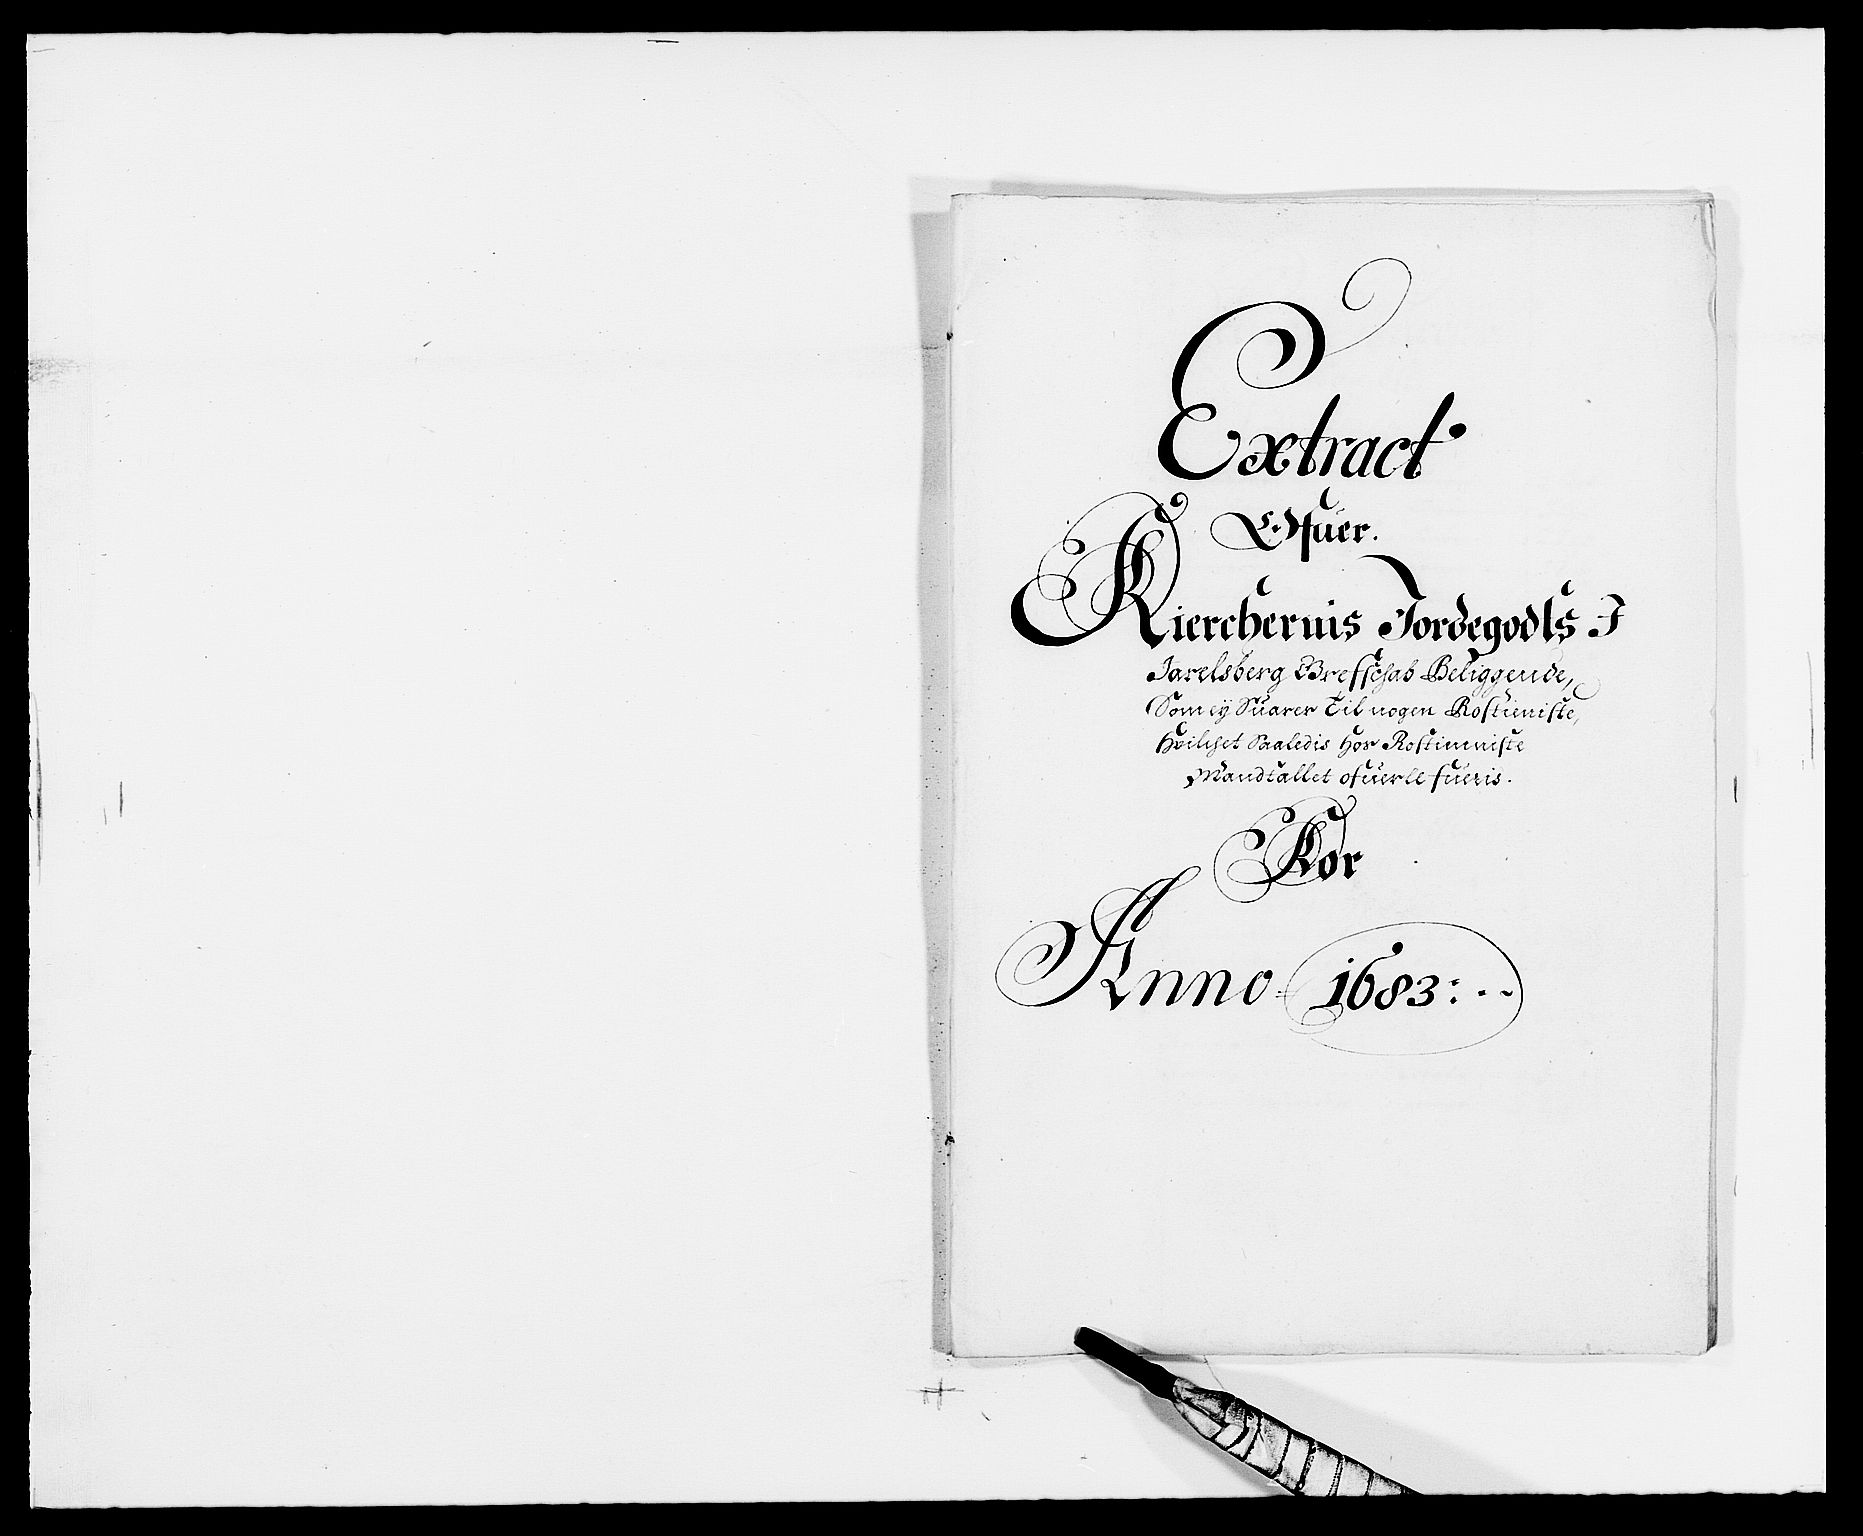 Extract
Ofuer.
Kierchernis Jordegodts I
Jarelsberg Grefschab Beliggende,
Som eÿ Suarer Til nogen Rostieniste,
Hvilchet Saaledis hos
Mandtallet ofuerlefueris.
For
Anno 1683: